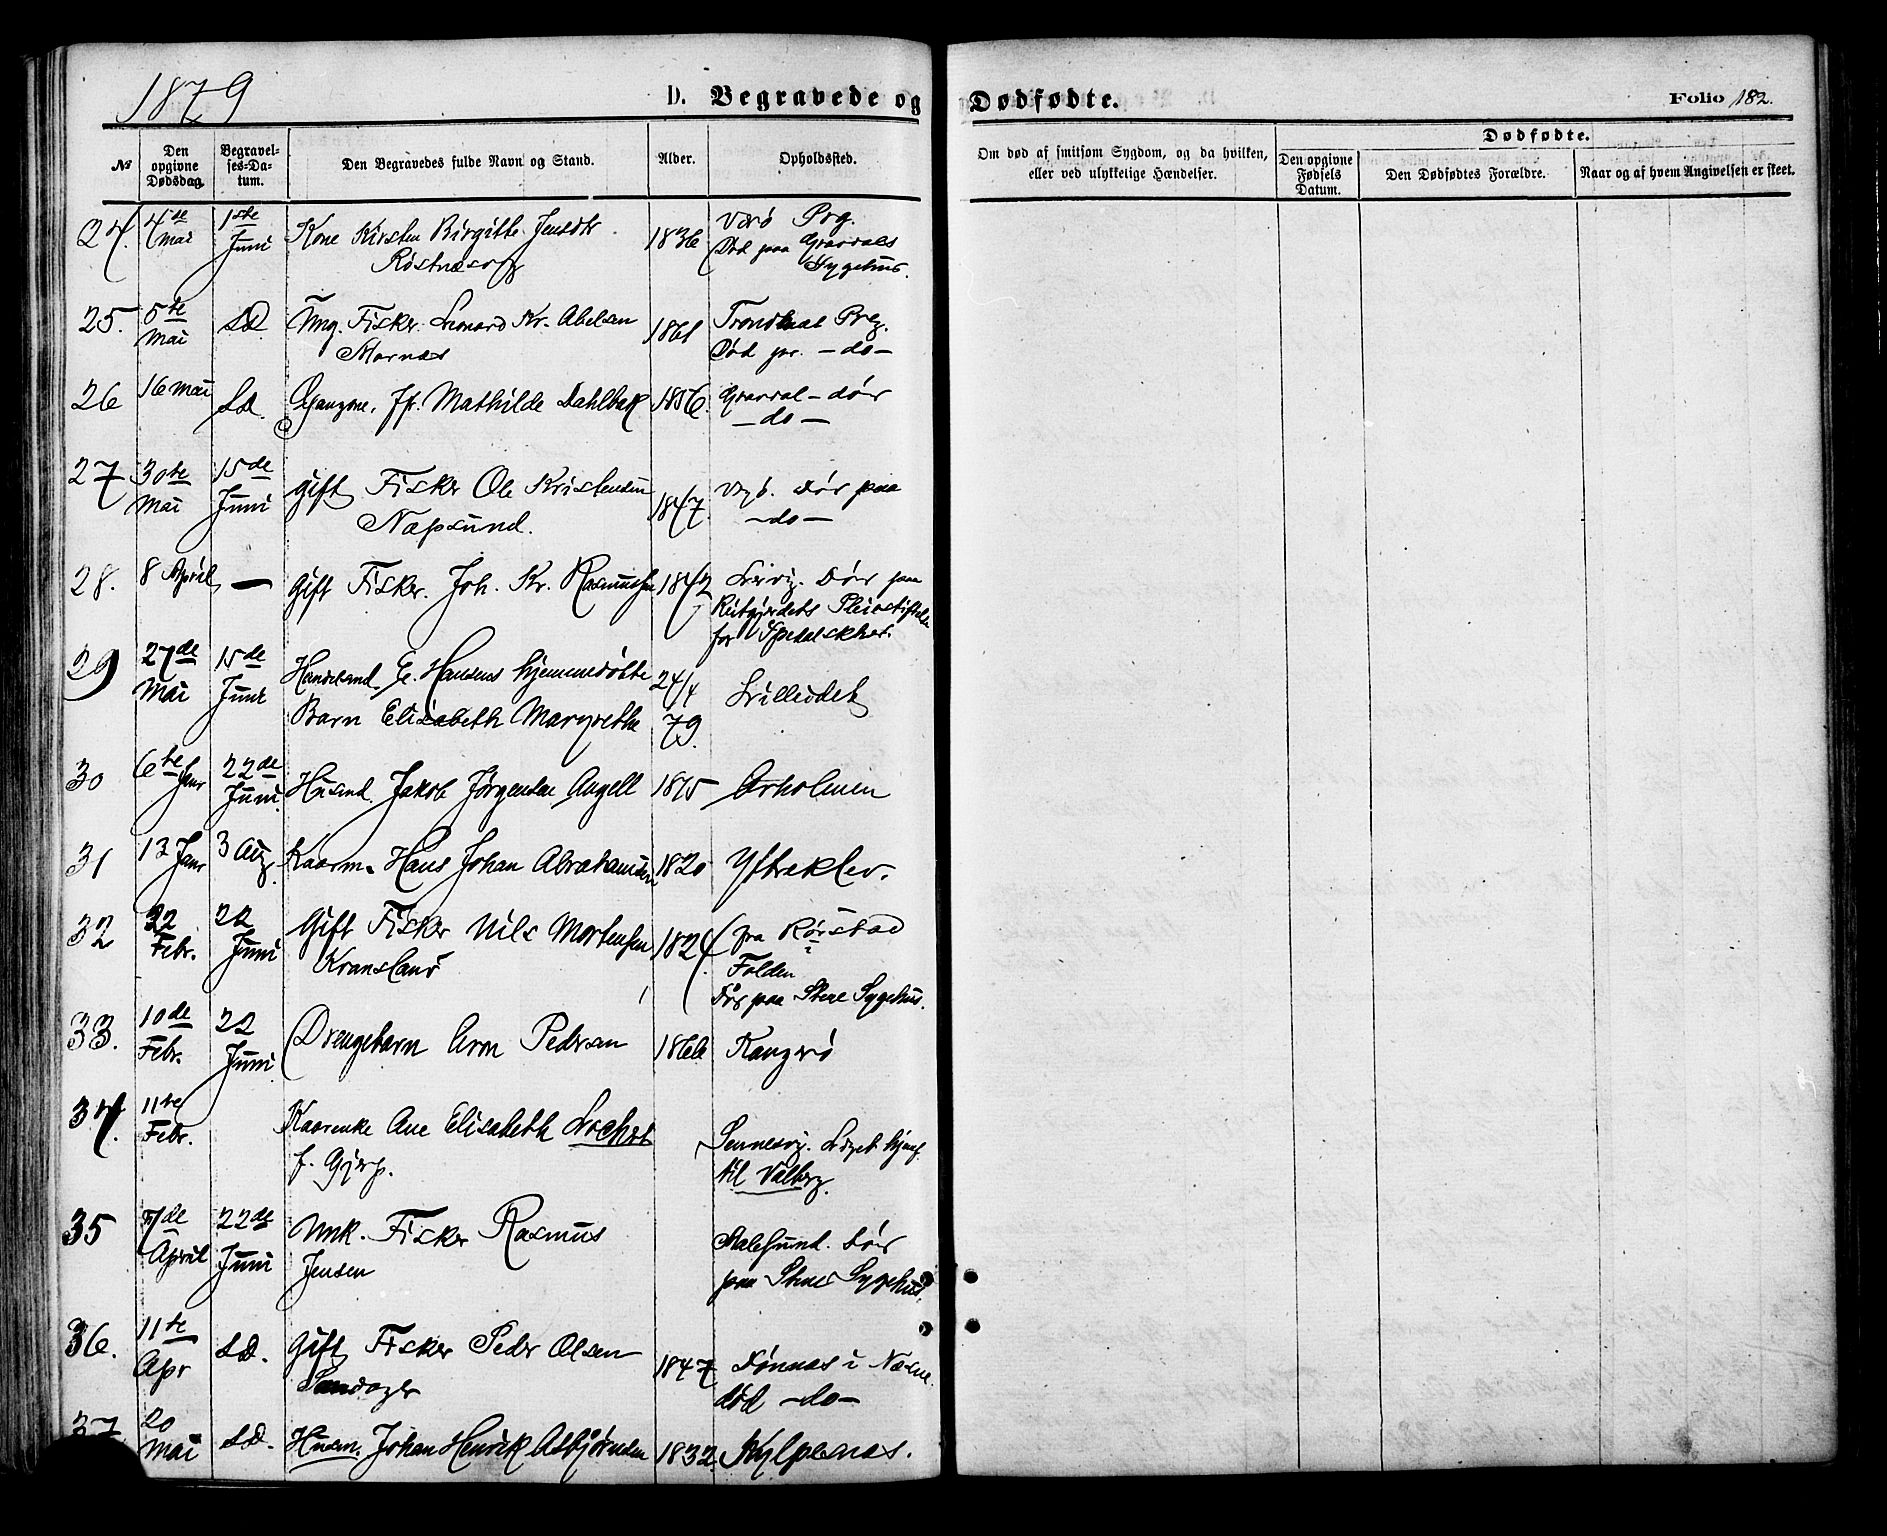 1879
D. Begravede og Dødfødte.
Folio 182.
№
Den opgivne Dødsdag.
Begravelses-Datum.
Den Begravedes fulde Navn og Stand.
Alder.
Opholdssted.
Om død af smitsom Sygdom, og da hvilken, eller ved ulykkelige Hændelser.
Dødfødte.
Den opgivne Fødsels Datum.
Den Dødfødtes Forældre.
Naar og af hvem Angivelsen er skeet.
24. 4de Mai 1ste Juni Kone Kirsten Birgitte Jensdtr 1836 Værø Prg.
Død paa Gravdals
Sygehus.
25. 5te Mai S.D. Ung. Fisker Leonard Kr. Abelsen 1861 Trondenæs Preg.
Død paa -do-
26 16 Mai S.D. Mathilde Dahlbak 1856. Gravdal - dør
-do-
27 30te Mai 15de Juni Gift Fisker Ole Kristensen 1847. dør paa
Napsund. -do-
28. 8 April — Gift Fisker. Joh. Kr. Rasmussen 1842 Dør paa
Reitgjerdets Pleiestiftelse
for Spedalskhet.
29 27de Mai 15de Juni Handelsmd. E. Hansens hjemmedøbte 24/4
Barn Elisabeth Margrethe 79. Lilleidet
30 6te Janr 22de Juni Husmd. Jakob Jørgensen Angell 1815 Arholmen
31 12 Janr 3 Aug. Kaarm. Hans Johan Abrahamsen 1820 Yttreklev.
32 22 Febr. 22 Juni Gift Fisker Nils Mortensen 1824. fra Rørstad
i
Folden
Dør paa Stene Sygehus.
33. 10de Febr. 22 Juni Drengebarn Aron Pedersen 1866 Kangerø
34. 11te Febr. Kaarenke Ane Elisabeth Lochert
f. Gjerp. Sennesvig. Liget hjemf.
til Valberg.
35 7de April 22de Juni Unk. Fisker Rasmus
Jensen Stalesund. Dør
paa Stene Sygehus.
36. 11te Apr S.D. Gift Fisker Peder Olsen 1847 Dønnæs i Næsne.
Sandager død -do-
37 20 Mai S.D. Husm. Johan Henrik Asbjørnsen 1832 Kylpenæs.